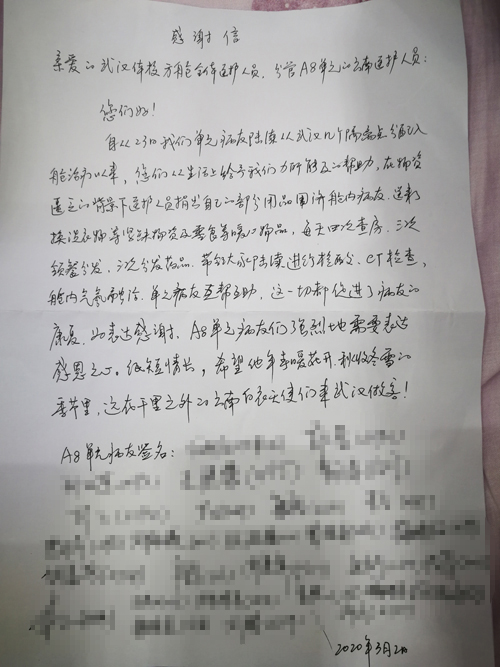 感谢信
亲爱的武汉体校方舱全体医护人员，分管A8单元的云南医护人员：
您们好！
自从23日我们单元病友陆续从武汉几个隔离点分配入
舱治疗以来，您们从生活上给予我们力所能及的帮助，在物资
匮乏的情景下医护人员捐出自己的部分用品周济舱内病友，送来
换洗衣物等紧缺物资及零食等暖心物品，每天四次查房，三次
领餐分发，三次分发药品，带领大家陆续进行核酸、CT检查，
舱内气氛融洽，单元病友互帮互助，这一切都促进了病友的
康复，为表达感谢，A8单元病友们强烈地需要表达
感恩之心。纸短情长，希望他年春暖花开，秋收冬雪的
季节里，远在千里之外的云南白衣天使们来武汉做客！
A8单元病友签名：
2020年3月2日